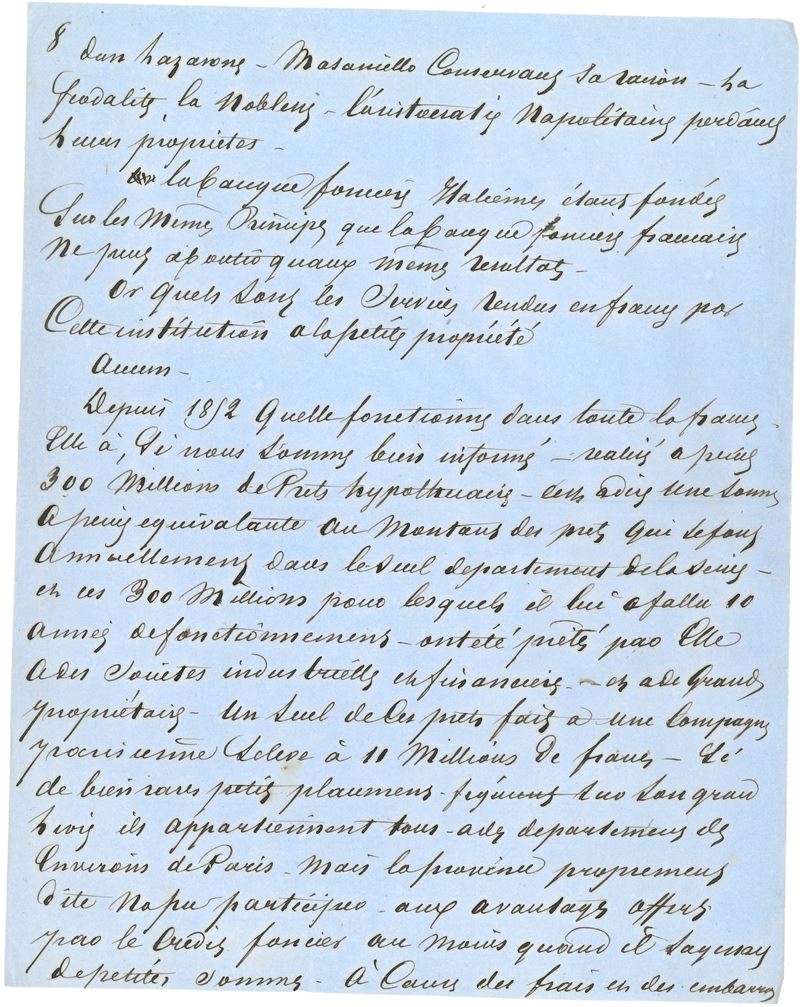 8 dun Lazarone – Masaniello Conservant sa raison – La
féodalité, la Noblesse – l'aristocratie Napolitaine perdant
Leurs propriétés –
la banque foncière Italienne étant fondée
Sur les Même Principes que la banque foncière française
Ne peut aboutir quaux même resultats –
Or quels sont les Services rendus en france par
Cette institution a la petite propriété
Aucun –
Depuis 1852 Quelle fonctionne dans toute la france –
Elle à, Si nous somme bien informé – realisé a peine
300 Millions de Prets hypothecaire – cest adire Une Somme
à peine equivalante au Montant des prets qui se font
Annuellement dans le seul departement de la Seine –
et ces 300 Millions pour lesquels il lui a fallu 10
année de fonctionnement – ont été prêté par Elle
a des Societes industrielle et financiere – et a de Grands
propriétaire – Un Seul de Ces prets fait a une Compagnie
parisienne Seleve à 11 Millions de francs – Si
de bien rares petits placement figurent sur son grand
Livre ils appartiennent tous a des departement des
Environs de Paris – Mais la province proprement
dite Na pu participer aux avantages offerts
par le Crédit foncier au moins quand il sagissait
de petites Somme – à Cause des frais et des embarras